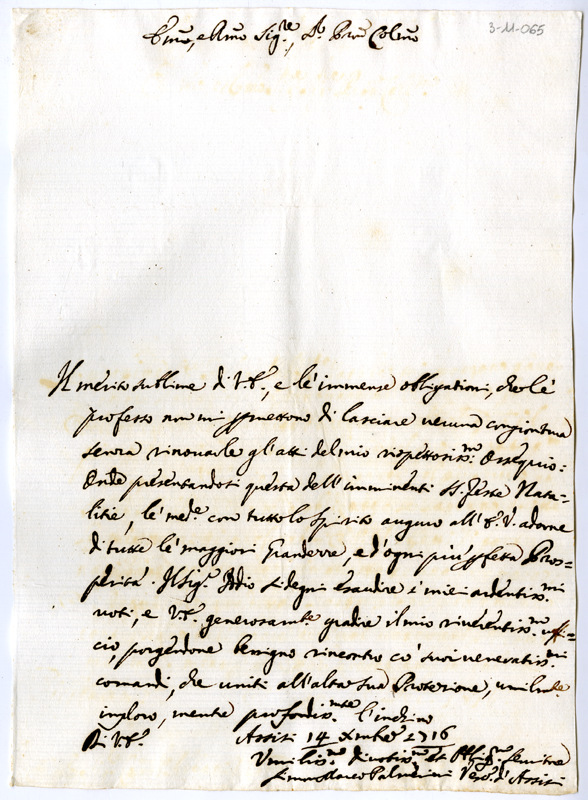 3-11-065
Em̃o, e Rm̃o Sig.re, P.r Prõn Colmõ
Il merito sublime di V.E., e le immense obligationi, che le
professo non mi permettono di lasciare veruna congiontura
senza rinovarle gl'atti del mio rispettosiss.mo Ossequio:
Onde presentandosi questa dell'imminenti SS. Feste Nata-
litie, le med.e con tutto lo spirito auguro all'E.V. adorne
di tutte le maggiori Grandezze, e d'ogni più pfetta Pros-
perità. Il Sig.r Iddio si degni esaudire i miei ardentiss.mi
voti, e V.E. generosam.te gradire il mio riverentiss.mo uffi-
cio, porgendone benigno rincontro co' suoi veneratiss.mi
comandi, che uniti all'alta sua Protezione, umilm.te
imploro, mentre profondis.mte l'inchino
Di V.E.
Assisi 14 Xmbre 1716
Umiliss.mo divotiss.mo et Obblig.mo Servitore
Palmerini Vesc.o d'Assisi